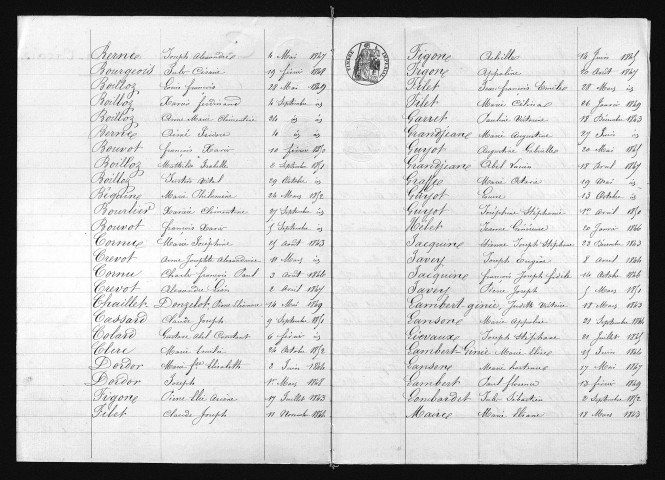 Berne Joseph Alexandre 4 Mai 1847
Bourgeois Jules Césaire 19 février 1848
Boilloz Louis françois 28 Mai 1849
Boilloz Xavier ferdinand 4 Septembre is
Boilloz Anne Marie Clémentine 24 is is
Berne Aimé Isidore 4 is is
Bouvot françois Xavier 10 février 1850
Boilloz Mathilde Isabelle 2 Septembre 1851
Boilloz Justin Vital 29 Octobre is
Béguine Marie Philomène 24 Mars 1852
Bourlier Xavier Clémentine 27 Septembre is
Bouvot françois Xavier 5 Septembre is
Cornu Marie Joséphine 25 Août 1843
Crevot Anne Josephte Alexandrine 11 Mars is
Cornu Charles françois Paul 3 Août 1844
Cuvot Alexandre Léon 2 Avril 1845
Chaillet Donzelot, Pierre Etienne 14 Mai 1849
Cassard Claude Joseph 9 Septembre 1851
Colard Gustave Abel Constant 6 février is
Clerc Marie Emélie 24 Octobre 1852
Dordor Marie fse Elisabeth 2 Juin 1844
Dordor Joseph 1er Mars 1848
Figon Pierre Arsène 17 Juillet 1843
Filet Claude Joseph 11 Novembre 1844
TIMBRE IMPERIAL
Figon Achille 14 Juin 1845
Figon Appoline 20 Août 1847
Filet Jean françois Emile 28 Mars is
Filet Marie Célina 26 Janvier 1849
Garret Pauline Victorine 18 Décembre 1843
Grandjean Marie Augustine 27 Juin is
Guyot Augustine 20 Mai 1845
Grandjean Abel 18 Avril 1847
Graffe Marie Octavie 19 Mai is
Guyot Louise 13 Octobre is
Guyot Joséphine Stéphanie 1er Avril 1850
Hilet 20 Janvier 1844
Jacquin Etienne Joseph Stéphane 23 Décembre 1843
Javey Joseph Eugène 8 Avril 1844
Jacquin françois Joseph fidele 14 Octobre 1848
Javey Pierre Joseph 5 Mars 1851
Lambert-génie, Josette Victoire 18 Mars 1843
Lanson Marie Appoline 21 Septembre 1844
Lievaux Joseph Stéphane 21 Juillet 1845
Lambert-Génie Marie Elise 25 Juin 1844
Lanson Marie hortense 27 Mai 1847
Lambert Paul florence 13 février 1849
Lombardet Jules Sébastien 2 Septembre 1852
Maire Marie Eliane 18 Mars 1843